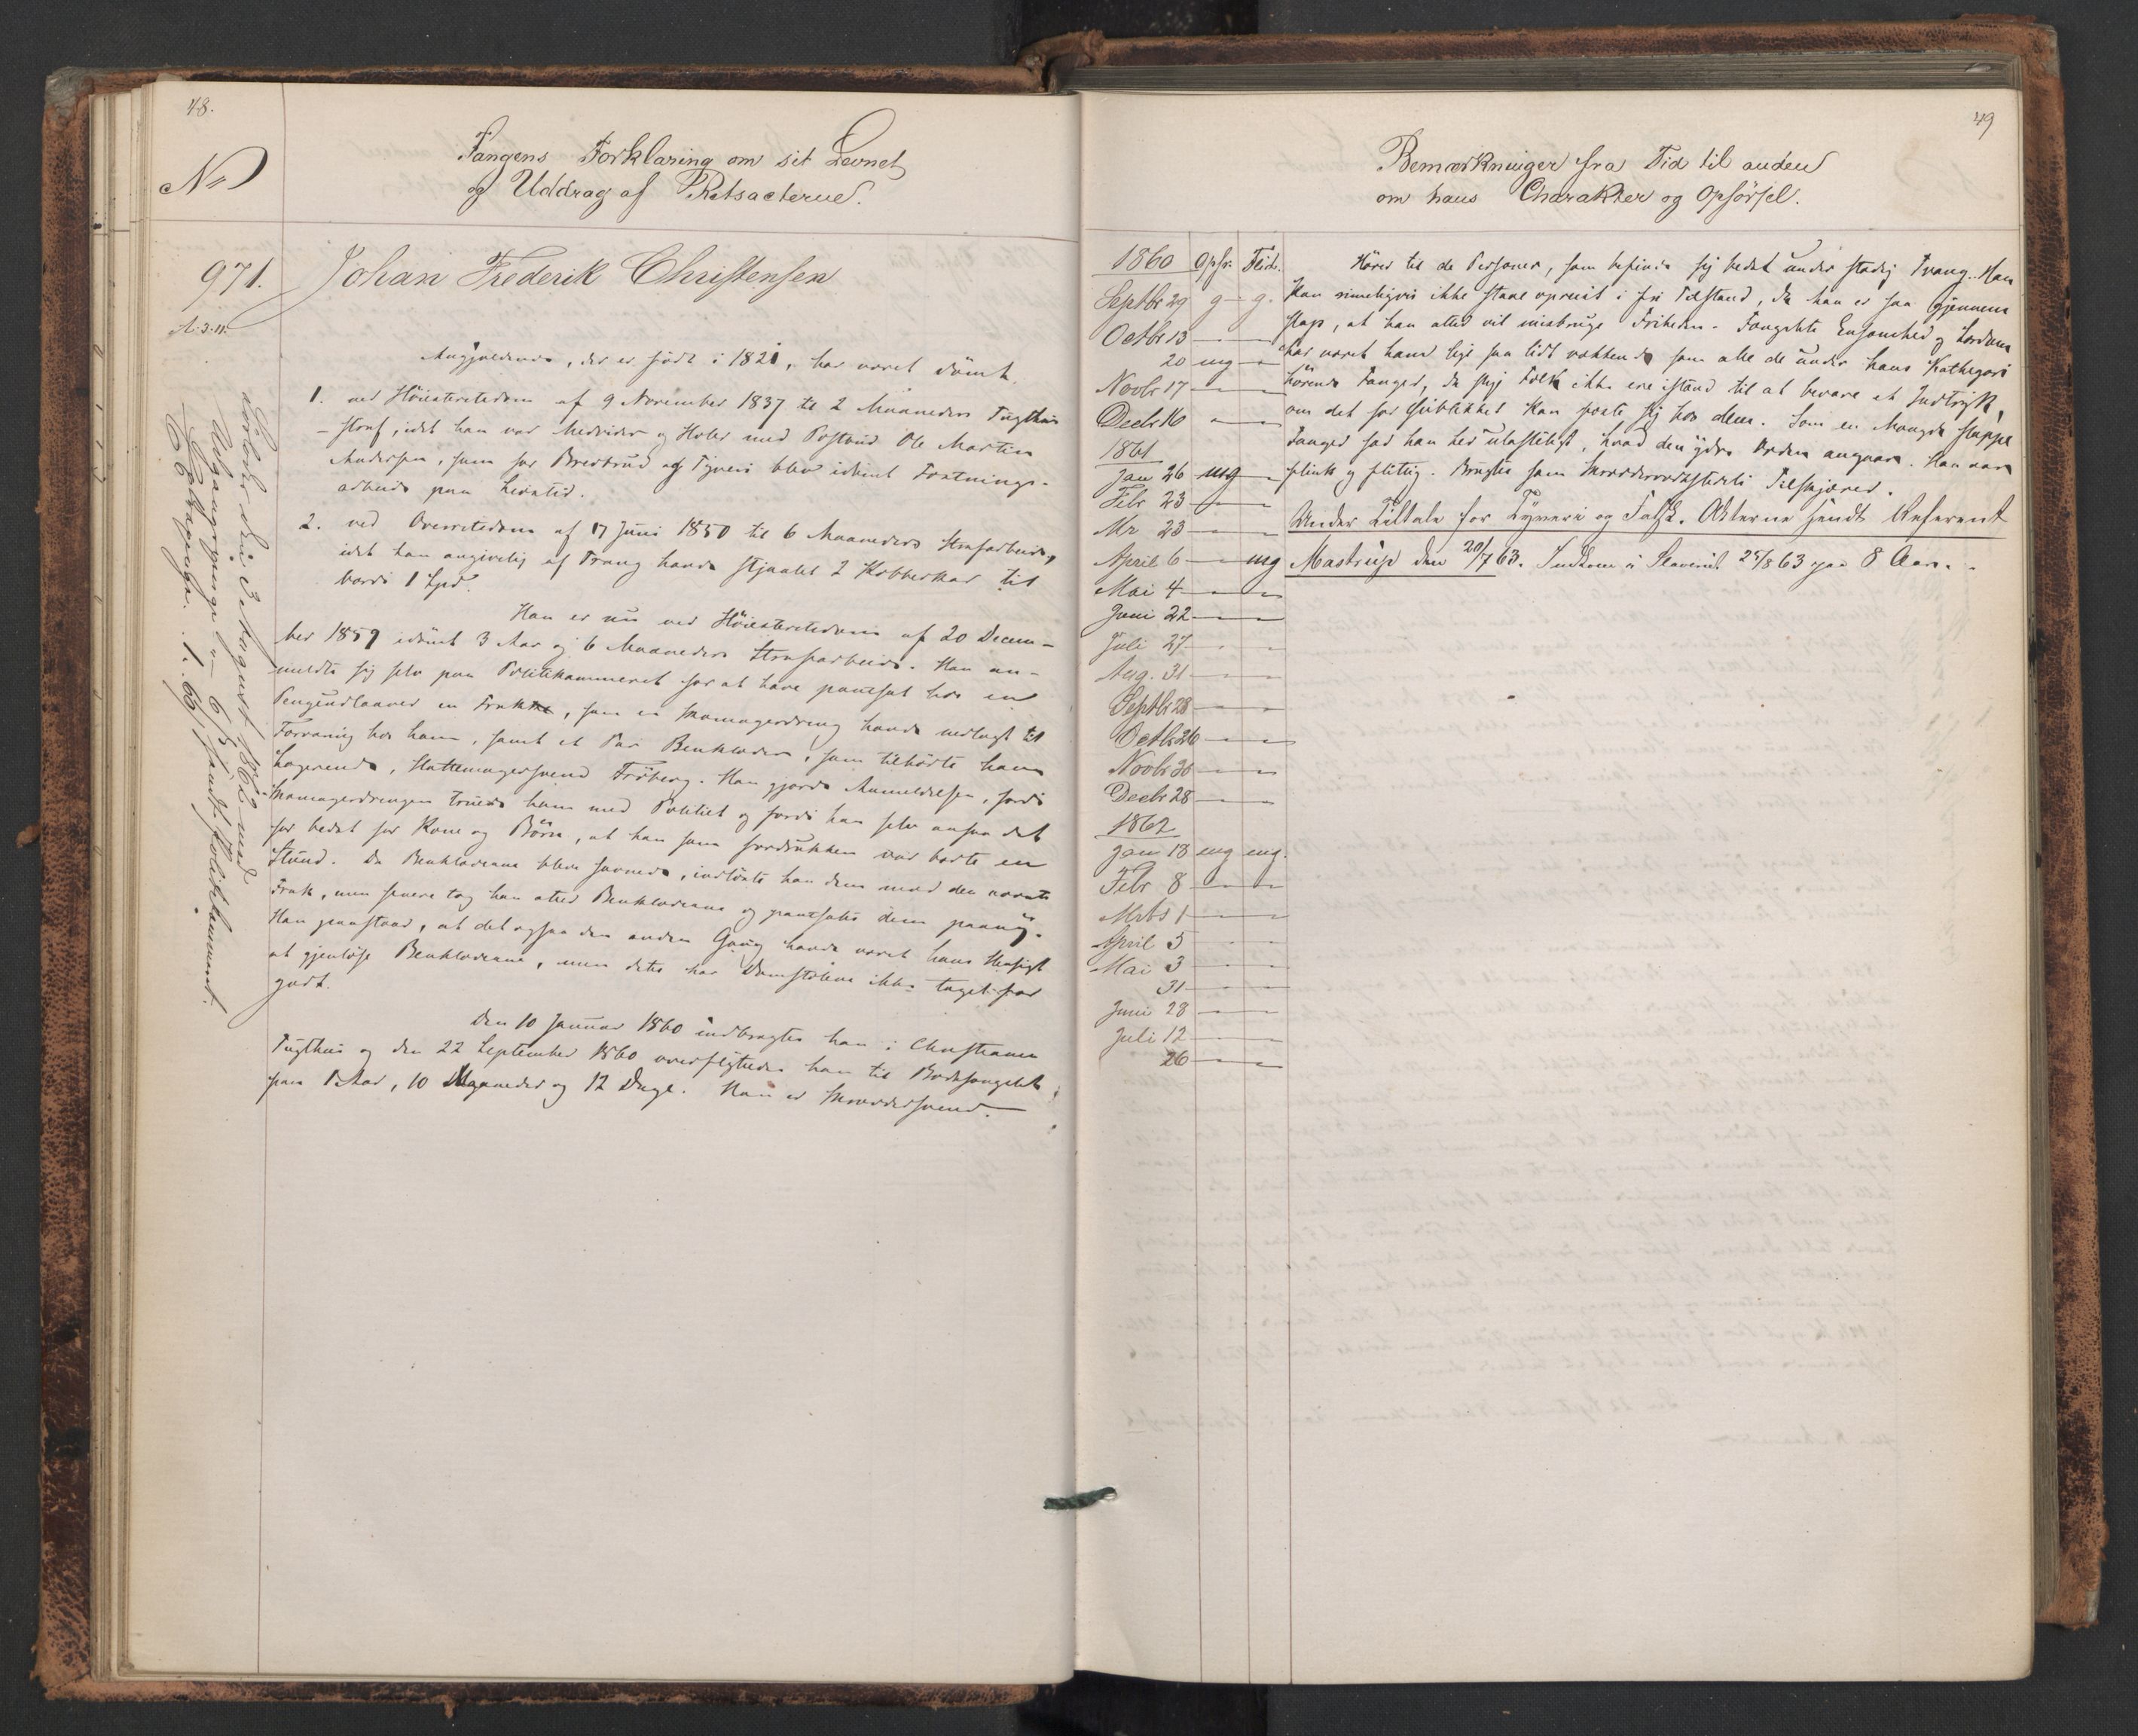 48.
No
Fangens Forklaring om sit Levnet
og Uddrag af Retsacterne.
971.
A. 3. 11.
Johan Frederik Christensen
Angjældende, der er født i 1821, har været dømt
1. ved Höiesteretsdom af 9 November 1837 til 2 Maaneders Tugthus
-straf, idet han var Medvider og Hæler med Postbud Ole Martin
Andersen, som for Brevbrud og Tyveri blev idømt Fæstnings-
arbeide paa Livstid.
2. ved Overretsdom af 17 Juni 1850 til 6 Maaneders Strafarbeide,
idet han angivelig af Trang havde stjaalet 2 Kobberkar til
Værdi 1 Spd.
Han er nu ved Höiesteretsdom af 20 Decem-
ber 1859 idømt 3 Aar og 6 Maaneders Strafarbeide. Han an-
meldte sig selv paa Politikammeret for at have pantsat hos en
Pengeudlaaner en Frakke, som en Skomagerdreng havde nedlagt til
Forvaring hos ham, samt et Par Benklæder, som tilhørte hans
Logerende, Hattemagersvend Fröberg. Han gjorde Anmeldelsen, fordi
Skomagerdrengen truede ham med Politiet og fordi han selv ansaa det
for bedst for Kone og Börn, at han som fordrukken var borte en
Stund. Da Benklæderne blev savnede, indløste han dem med den nævnte
Frak, men senere tog han atter Benklæderne og pantsatte dem paany.
Han paastaar, at det ogsaa den anden Gang havde været hans Hensigt
at gjenløse Benklæderne, men dette har Domstolene ikke taget for
godt.
Den 10 Januar 1860 indbragtes han i Christiania
Tugthus og den 22 September 1860 overflyttedes han til Bodsfængslet
paa 1 Aar, 10 Maaneder og 12 Dage. Han er Skræddersvend.
Løsladt den 3 August 1862 med
Udgangspenge
sendt Politikammeret.
49
Bemærkninger fra Tid til anden
om hans Charakter og Opförsel.
1860 Opfr. Flid.
Septbr 29 g - g.
Octbr 13 - -
20 mg -
Novbr 17 - -
Decbr 16 - -
1861
Jan 26 mg -
Febr 23 - -
Mr 23 - -
April 6 - mg
Mai 4 - -
Juni 22 - -
Juli 27 - -
Aug. 31 - -
Septbr 28 - -
Octbr 26 - -
Novbr 30 - -
Decbr 28 - -
1862
Jan 18 mg mg.
Febr 8 - -
Mrts 1 - -
April 5 - -
Mai 3 - -
31 - -
Juni 28 - -
Juli 12 - -
26 - -
Hører til de Personer, som befinde sig bedst under stadig Tvang. Han
kan rimeligvis ikke staae opreist i fri Tilstand, da han er saa gjennem
slap, at han altid vil misbruge Friheden. Fængslets Ensomhed og Lærdom
har været ham lige saa lidt vækkende som alle de under hans Kathegori
hørende Fanger, da slige Folk ikke ere istand til at bevare et Indtryk,
om det for Øieblikket kan fæste sig hos dem. Som en Mængde slappe
Fanger sad han her ulasteligt, hvad den ydre Orden angaar. Han var
flink og flittig. Brugtes som Skrædderværkstedets Tilskjærer.
Under Tiltale for Tyveri og Falsk. Akterne sendt Referent
Mastrup den 20/7 63. Indkom i Slaveriet 25/8 63 paa 8 Aar.